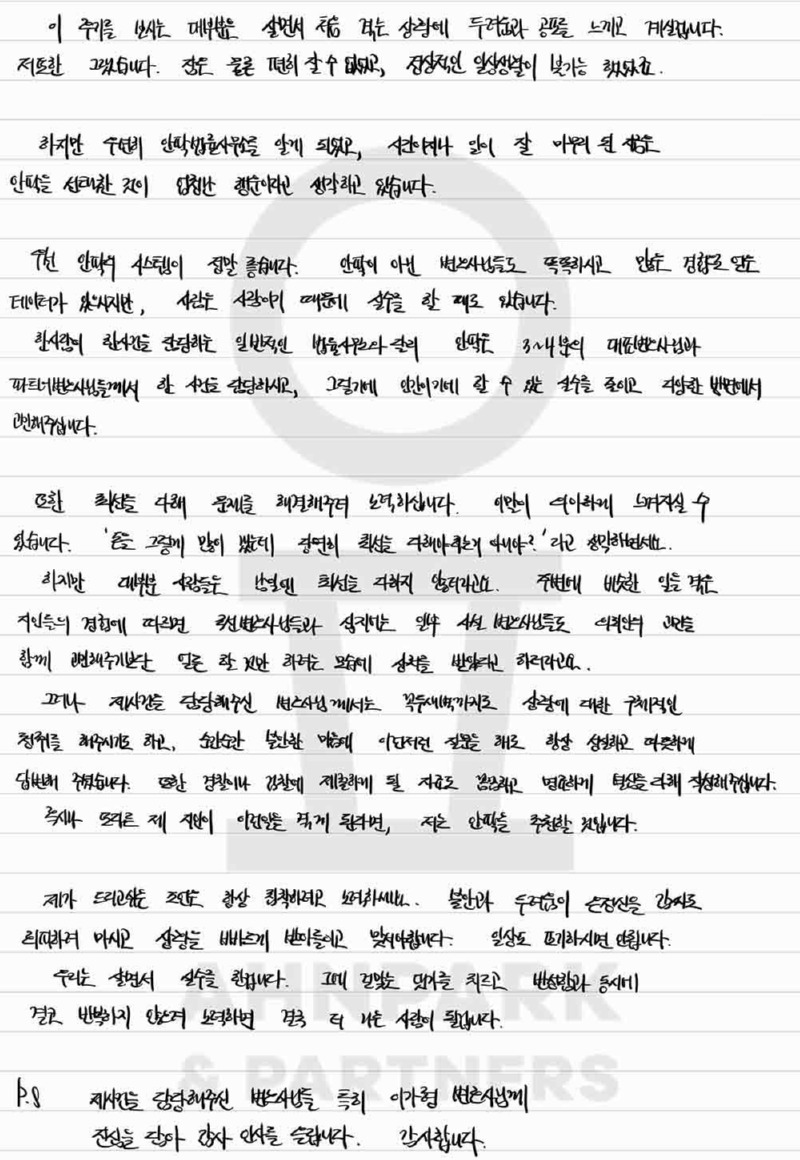 이 후기를 보시는 대부분은 살면서 처음 겪는 상황에 두려움과 공포를 느끼고 계실겁니다.
저또한 그랬습니다. 잠은 물론 편히 잘 수 없었고, 정상적인 일상생활이 불가능 했었고요.
하지만 우연히 안팍법률사무소를 알게 되었고, 시간이지나 일이 잘 마무리 된 지금은
안팍을 선택한 것이 엄청난 행운이라고 생각하고 있습니다.
우선 안팍의 시스템이 정말 좋습니다. 안팍이 아닌 변호사님들도 똑똑하시고 많은 경험으로 얻은
데이터가 있으시지만, 사람은 사람이기 때문에 실수를 할 때도 있습니다.
한사람이 한사건을 담당하는 일반적인 법률사무소와 달리 안팍은 3~4분의 대표변호사님과
파트너변호사님들께서 한 사건을 담당하시고, 그렇기에 인간이기에 할 수 있는 실수를 줄이고 다양한 방면에서
고민해주십니다.
또한 최선을 다해 문제를 해결해주려 노력하십니다. 이말이 의아하게 느껴지실 수
있습니다. '돈을 그렇게 많이 썼는데 당연히 최선을 다해야하는거 아니야?' 라고 생각하실텐데요.
하지만 대부분 사람들은 남일엔 최선을 다하지 않더라고요. 주변에 비슷한 일을 겪은
지인들의 경험에 따르면 국선변호사님들과 심지어는 일부 사선 변호사님들도 의뢰인의 고민을
함께 고민해주기보단 일로 할 것만 하려는 모습에 상처를 받았다고 하더라고요.
그러나 제사건을 담당해주신 변호사님께서는 꼭두새벽까지도 상황에 대한 구체적인
청취를 해주시기도 하고, 순간순간 불안한 마음에 이런저런 질문을 해도 항상 성실하고 따뜻하게
답변해 주셨습니다. 또한 경찰이나 검찰에 제출하게 될 자료도 꼼꼼하고 명료하게 최선을 다해 작성해주십니다.
혹시나 또다른 제 지인이 이런일을 겪게 된다면, 저는 안팍을 추천할 것입니다.
제가 드리고싶은 조언은 항상 침착하려고 노력하세요. 불안과 두려움이 온정신을 감싸도
회피하려 마시고 상황을 빠르게 받아들이고 맞서야합니다. 일상도 포기하시면 안됩니다.
우리는 살면서 실수를 한겁니다. 그에 걸맞는 댓가를 치르고 반성함과 동시에
결코 반복하지 않으려 노력하면 결국 더 나은 사람이 될겁니다.
P.S 제사건을 담당해주신 변호사님들 특히 이가령 변호사님께
진심을 담아 감사 인사를 올립니다. 감사합니다.
AHNPARK
& PARTNERS